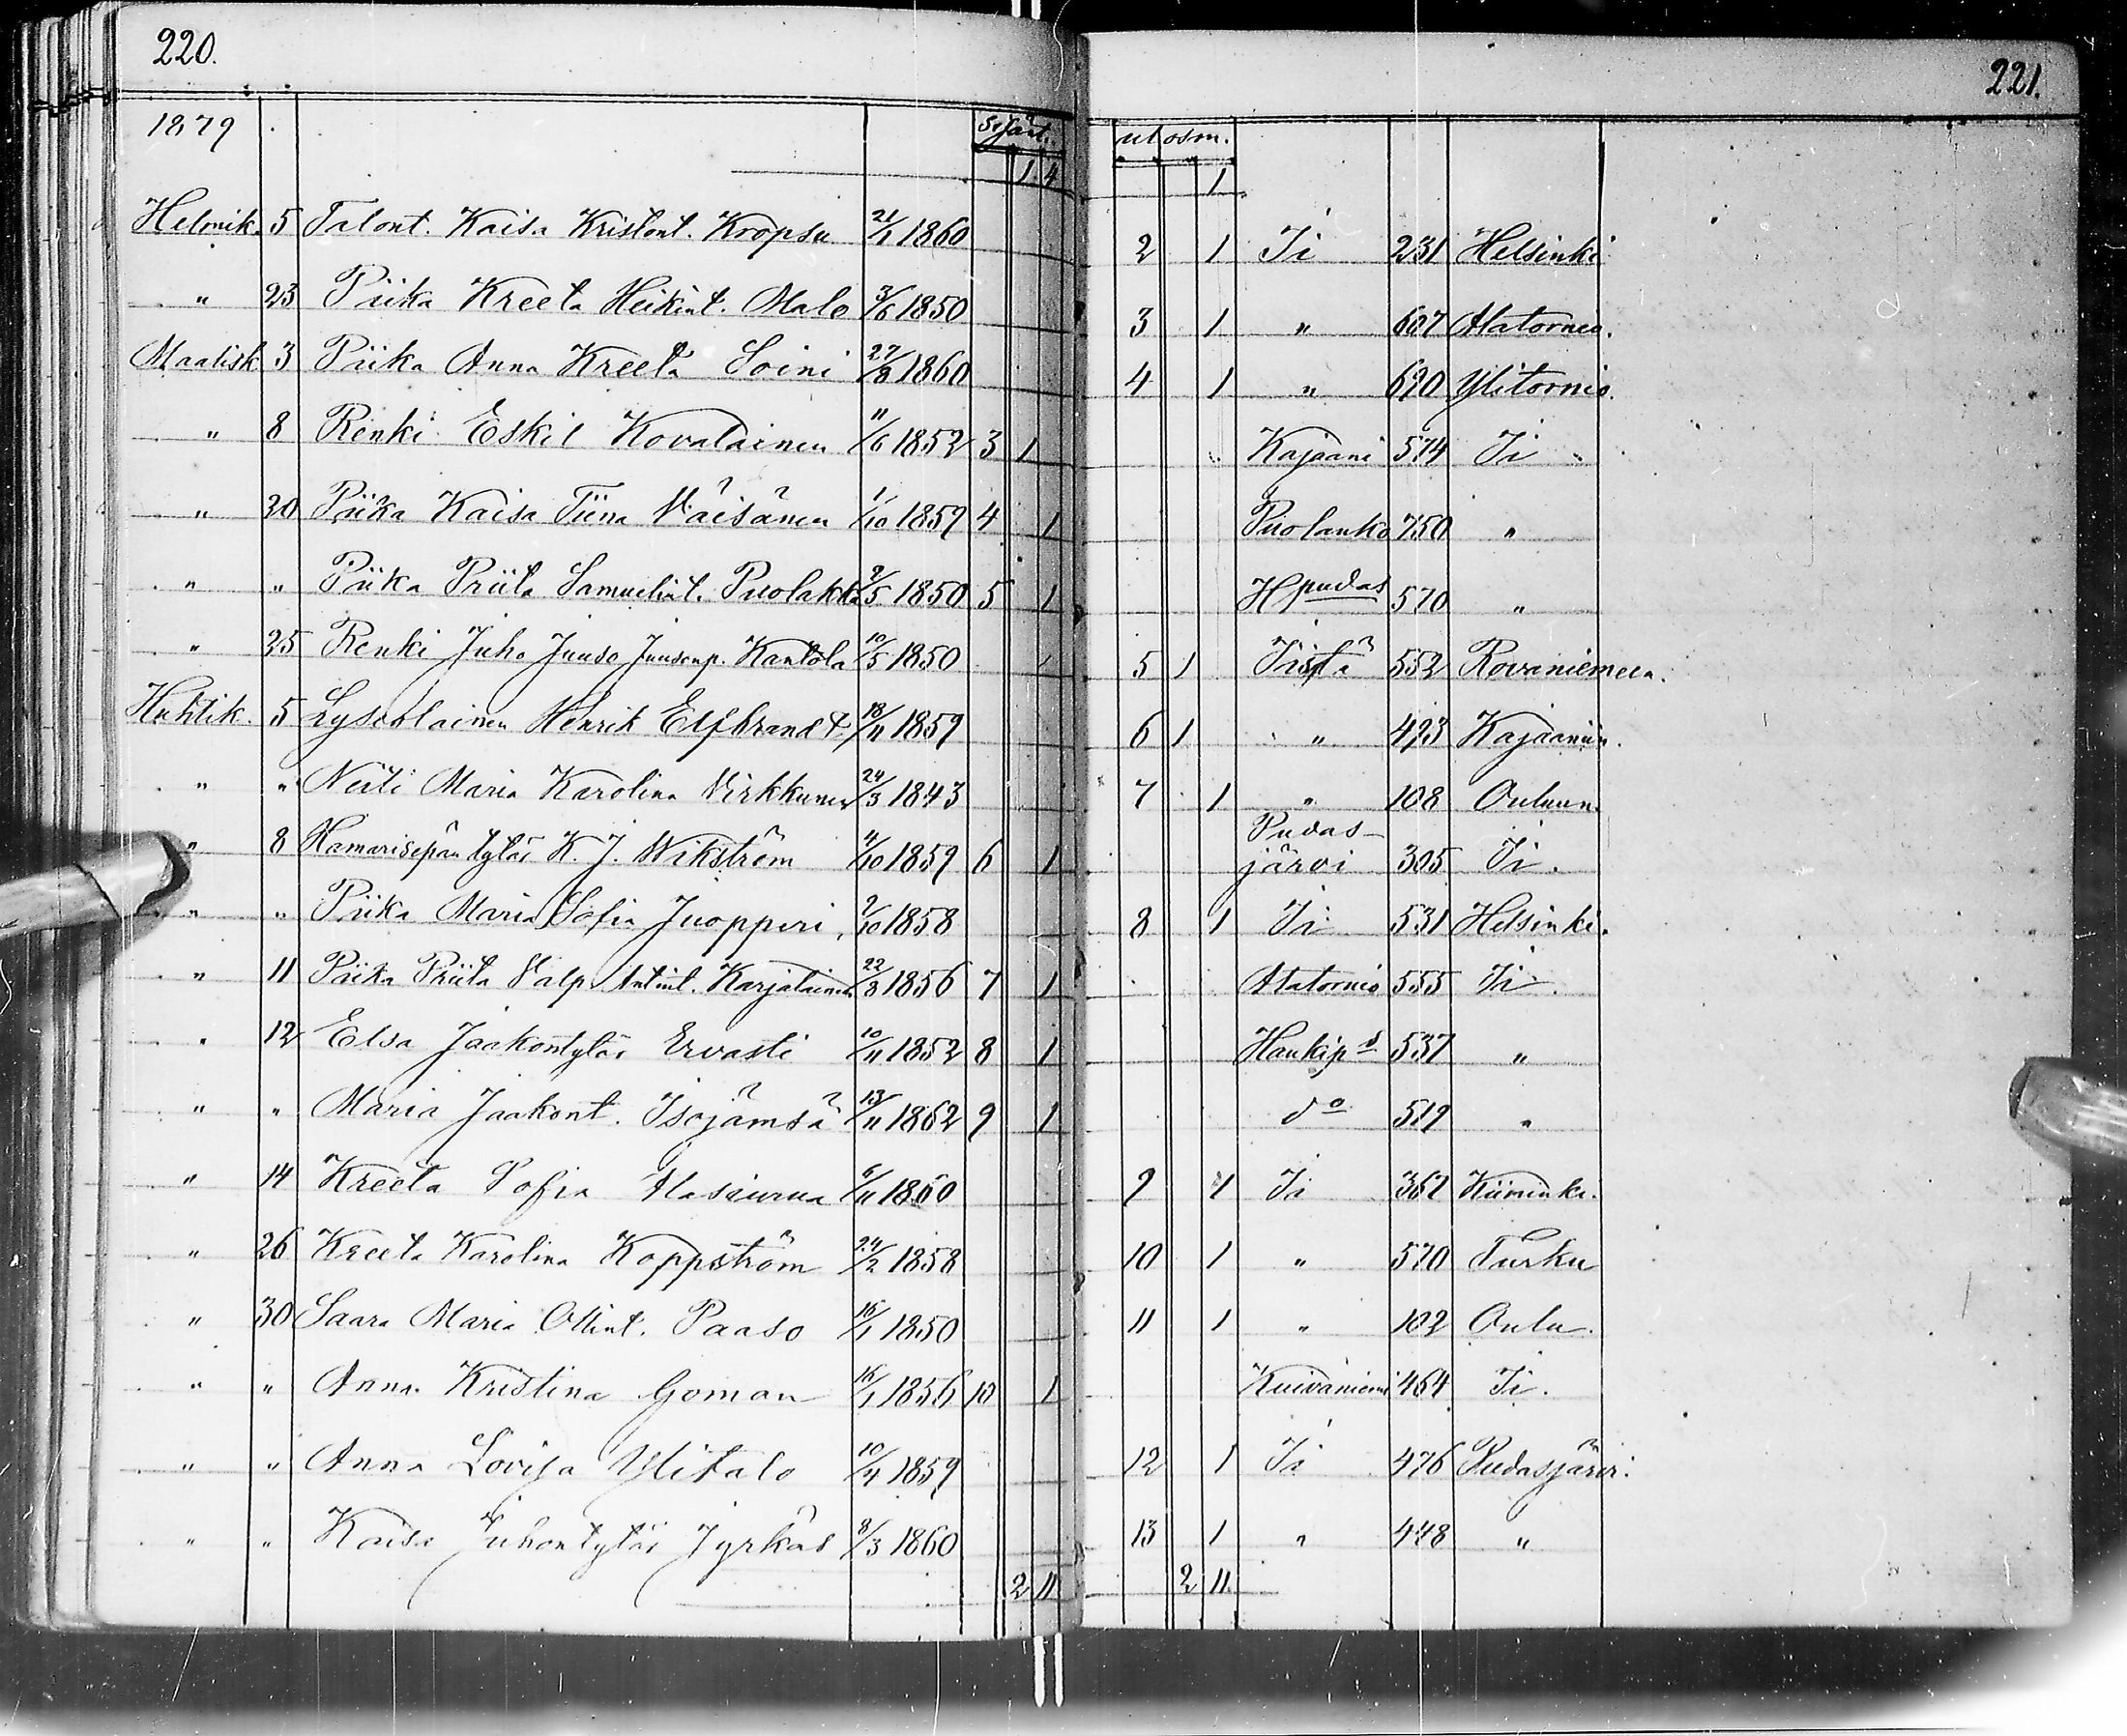 220.
221.
1879 utosm.
1 4 1
Helmik. 5 Talont. Kaisa Kristont. Kropsu 21/1 1860 2 1 Ii 231 Helsinki
" 23 Piika Kreeta Heikint. Malo 3/6 1850 3 1 " 607 Alatornio.
Maalisk. 3 Piika Anna Kreeta Soini 27/8 1860 4 1 " 690 Ylitornio.
" 8 Renki Eskil Kovalainen 11/6 1852 3 1 Kajaani 574 Ii
" 20 Piika Kaisa Tiina Väisänen 1/10 1859 4 1 Puolanko 750 "
" " Piika Priita Samuelint. Puolakka 2/5 1850 5 1 H pudas 570 "
" 25 Renki Juho Juuso Juusonp. Kantola 10/5 1850 5 1 Iistä 552 Rovaniemeen.
Huhtik. 5 Lyseolainen Henrik Elfbrandt 18/11 1859 6 1 " 493 Kajaaniin.
" " Neiti Maria Karolina Virkkunen 24/3 1843 7 1 " 108 Ouluun.
" 8 Hamarisepän tytär K. J. Wikström 4/10 1859 6 1 Pudas-
järvi 305 Ii.
" " Piika Maria Sofia Juopperi 2/10 1858 8 1 Ii 531 Helsinki.
" 11 Piika Priita Valp. Antint. Karjalainen 22/8 1856 7 1 Alatornio 555 Ii.
" 12 Elsa Jaakontytär Ervasti 10/11 1852 8 1 Haukip d 537 "
" " Maria Jaakont. Isojämsä 13/11 1862 9 1 do 519 "
" 14 Kreeta Sofia Alasiurua 6/11 1860 9 1 Ii 362 Kiiminki.
" 26 Kreeta Karolina Koppström 24/2 1858 10 1 " 570 Turku
" 30 Saara Maria Ollint. Paaso 16/1 1850 11 1 " 102 Oulu.
" " Anna Kristina Goman 16/1 1856 10 1 Kuivaniemi 464 Ii.
" " Anna Lovisa Ylitalo 10/4 1859 12 1 Ii 476 Pudasjärvi.
" " Kaisa Juhontytär Jyrkäs 8/3 1860 13 1 " 448 "
2 11 2 11.